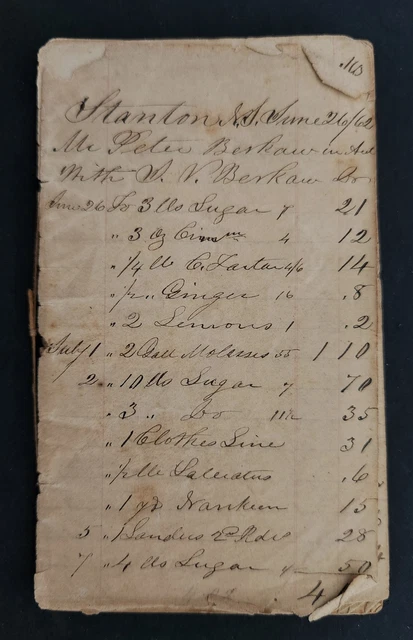 Stanton N.J. June 26/62
Mr Peter Berkaw in Act
With S. V. Berkaw Dr
June 26 To 3 lbs Sugar 7 21
" 3 oz Cinnm 4 12
" 1/4 lb C. Tartar 4/6 14
" 1/2 " Ginger 16 .8
" 2 Lemons 1 .2
July 1 " 2 Gall Molasses 55 1 10
2 " 10 lbs Sugar 7 70
" 3 " Do 35
" 1 Clothes Line 31
" 1/2 lb Saleratus .6
" 1 yd Nankeen 15
5 " 28
7 " 4 lbs Sugar 50
4